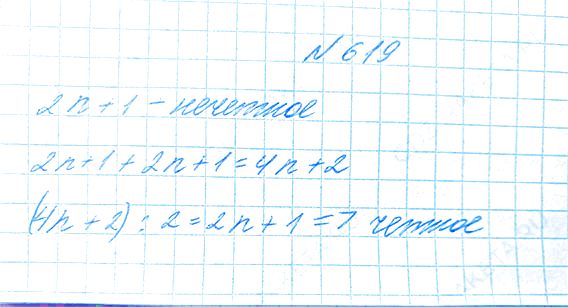 N 619
2n+1 - нечетное
2n+1+2n+1=4n+2
(4n+2):2=2n+1=7 четное